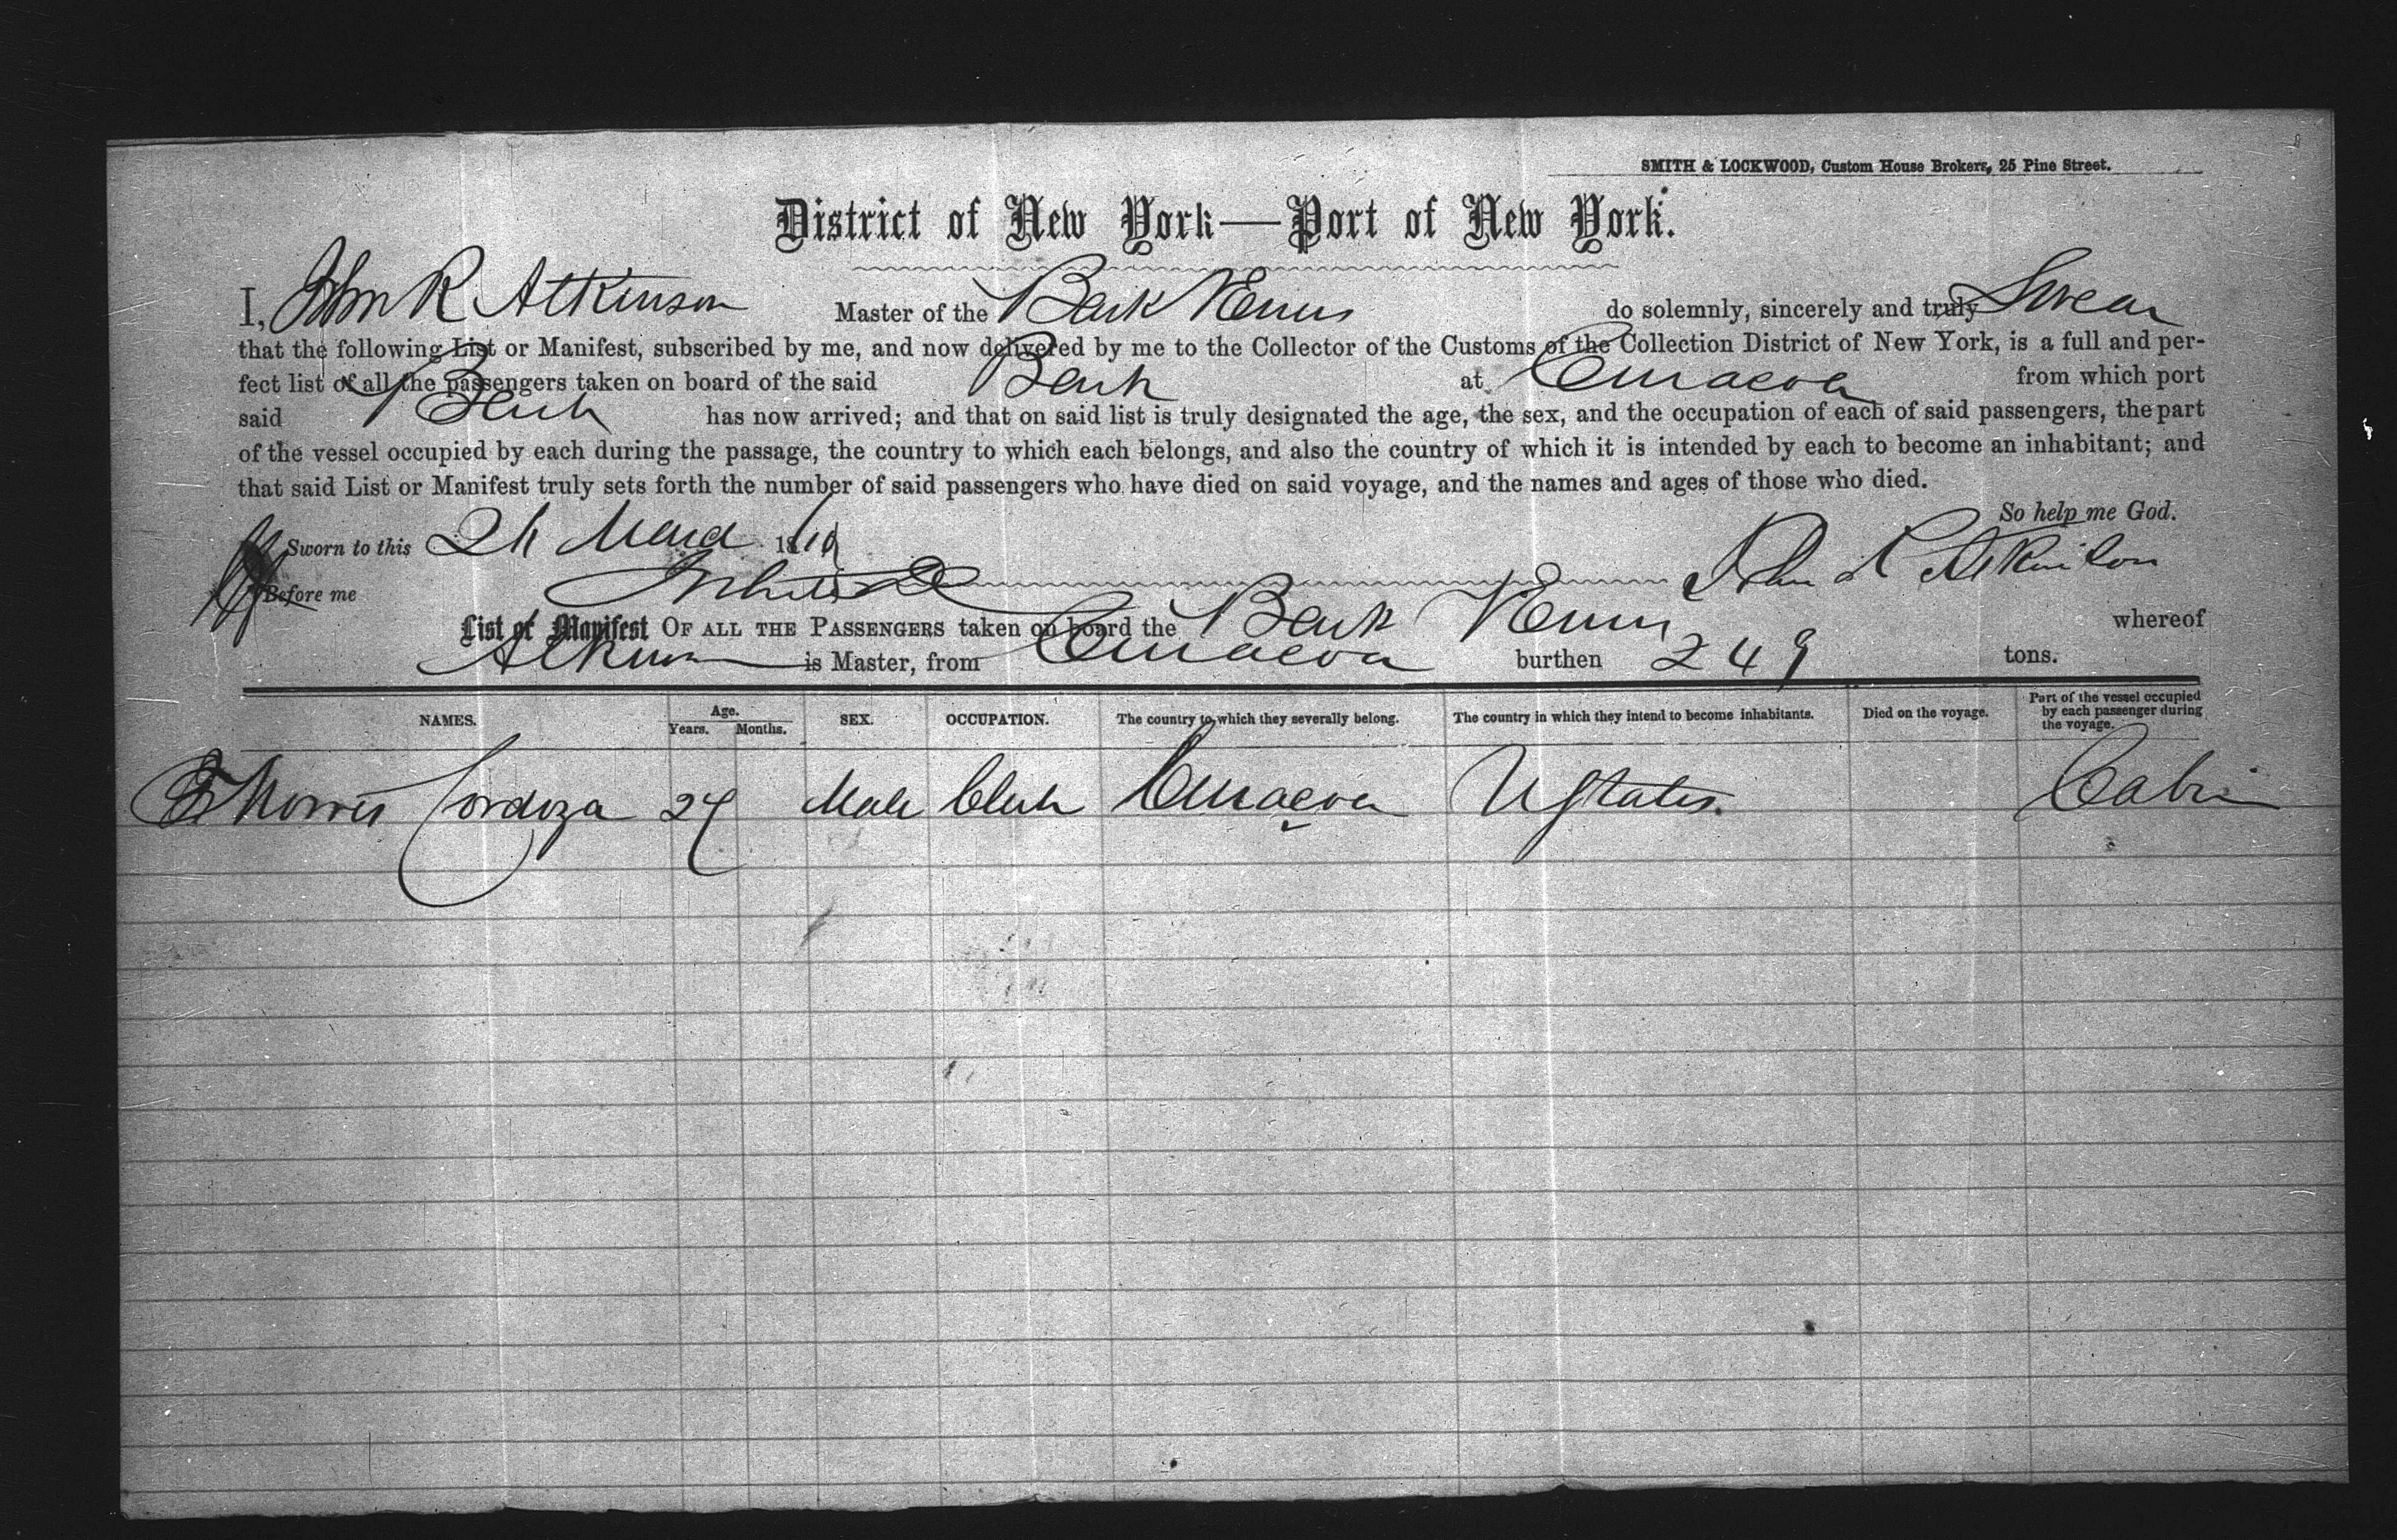 SMITH & LOCKWOOD, Custom House Brokers, 25 Pine Street.
District of New York—Port of New York.
I, John R Atkinson Master of the Bark Venus do solemnly, sincerely and truly Swear
that the following List or Manifest, subscribed by me, and now delivered by me to the Collector of the Customs of the Collection District of New York, is a full and per-
fect list of all the passengers taken on board of the said Bark at Curacoa from which port
said Bark has now arrived; and that on said list is truly designated the age, the sex, and the occupation of each of said passengers, the part
of the vessel occupied by each during the passage, the country to which each belongs, and also the country of which it is intended by each to become an inhabitant; and
that said List or Manifest truly sets forth the number of said passengers who have died on said voyage, and the names and ages of those who died.
So help me God.
Sworn to this March 18
John R Atkinson
Before me
List or Manifest OF ALL THE PASSENGERS taken on board the Bark Venus whereof
Atkinson is Master, from Curacoa burthen 249 tons.
NAMES. Age. Years. Months. SEX. OCCUPATION. The country to which they severally belong. The country in which they intend to become inhabitants. Died on the voyage. Part of the vessel occupied by each passenger during the voyage.
Morris Cordoza 24 Male Clerk Curacoa U States. Cabin